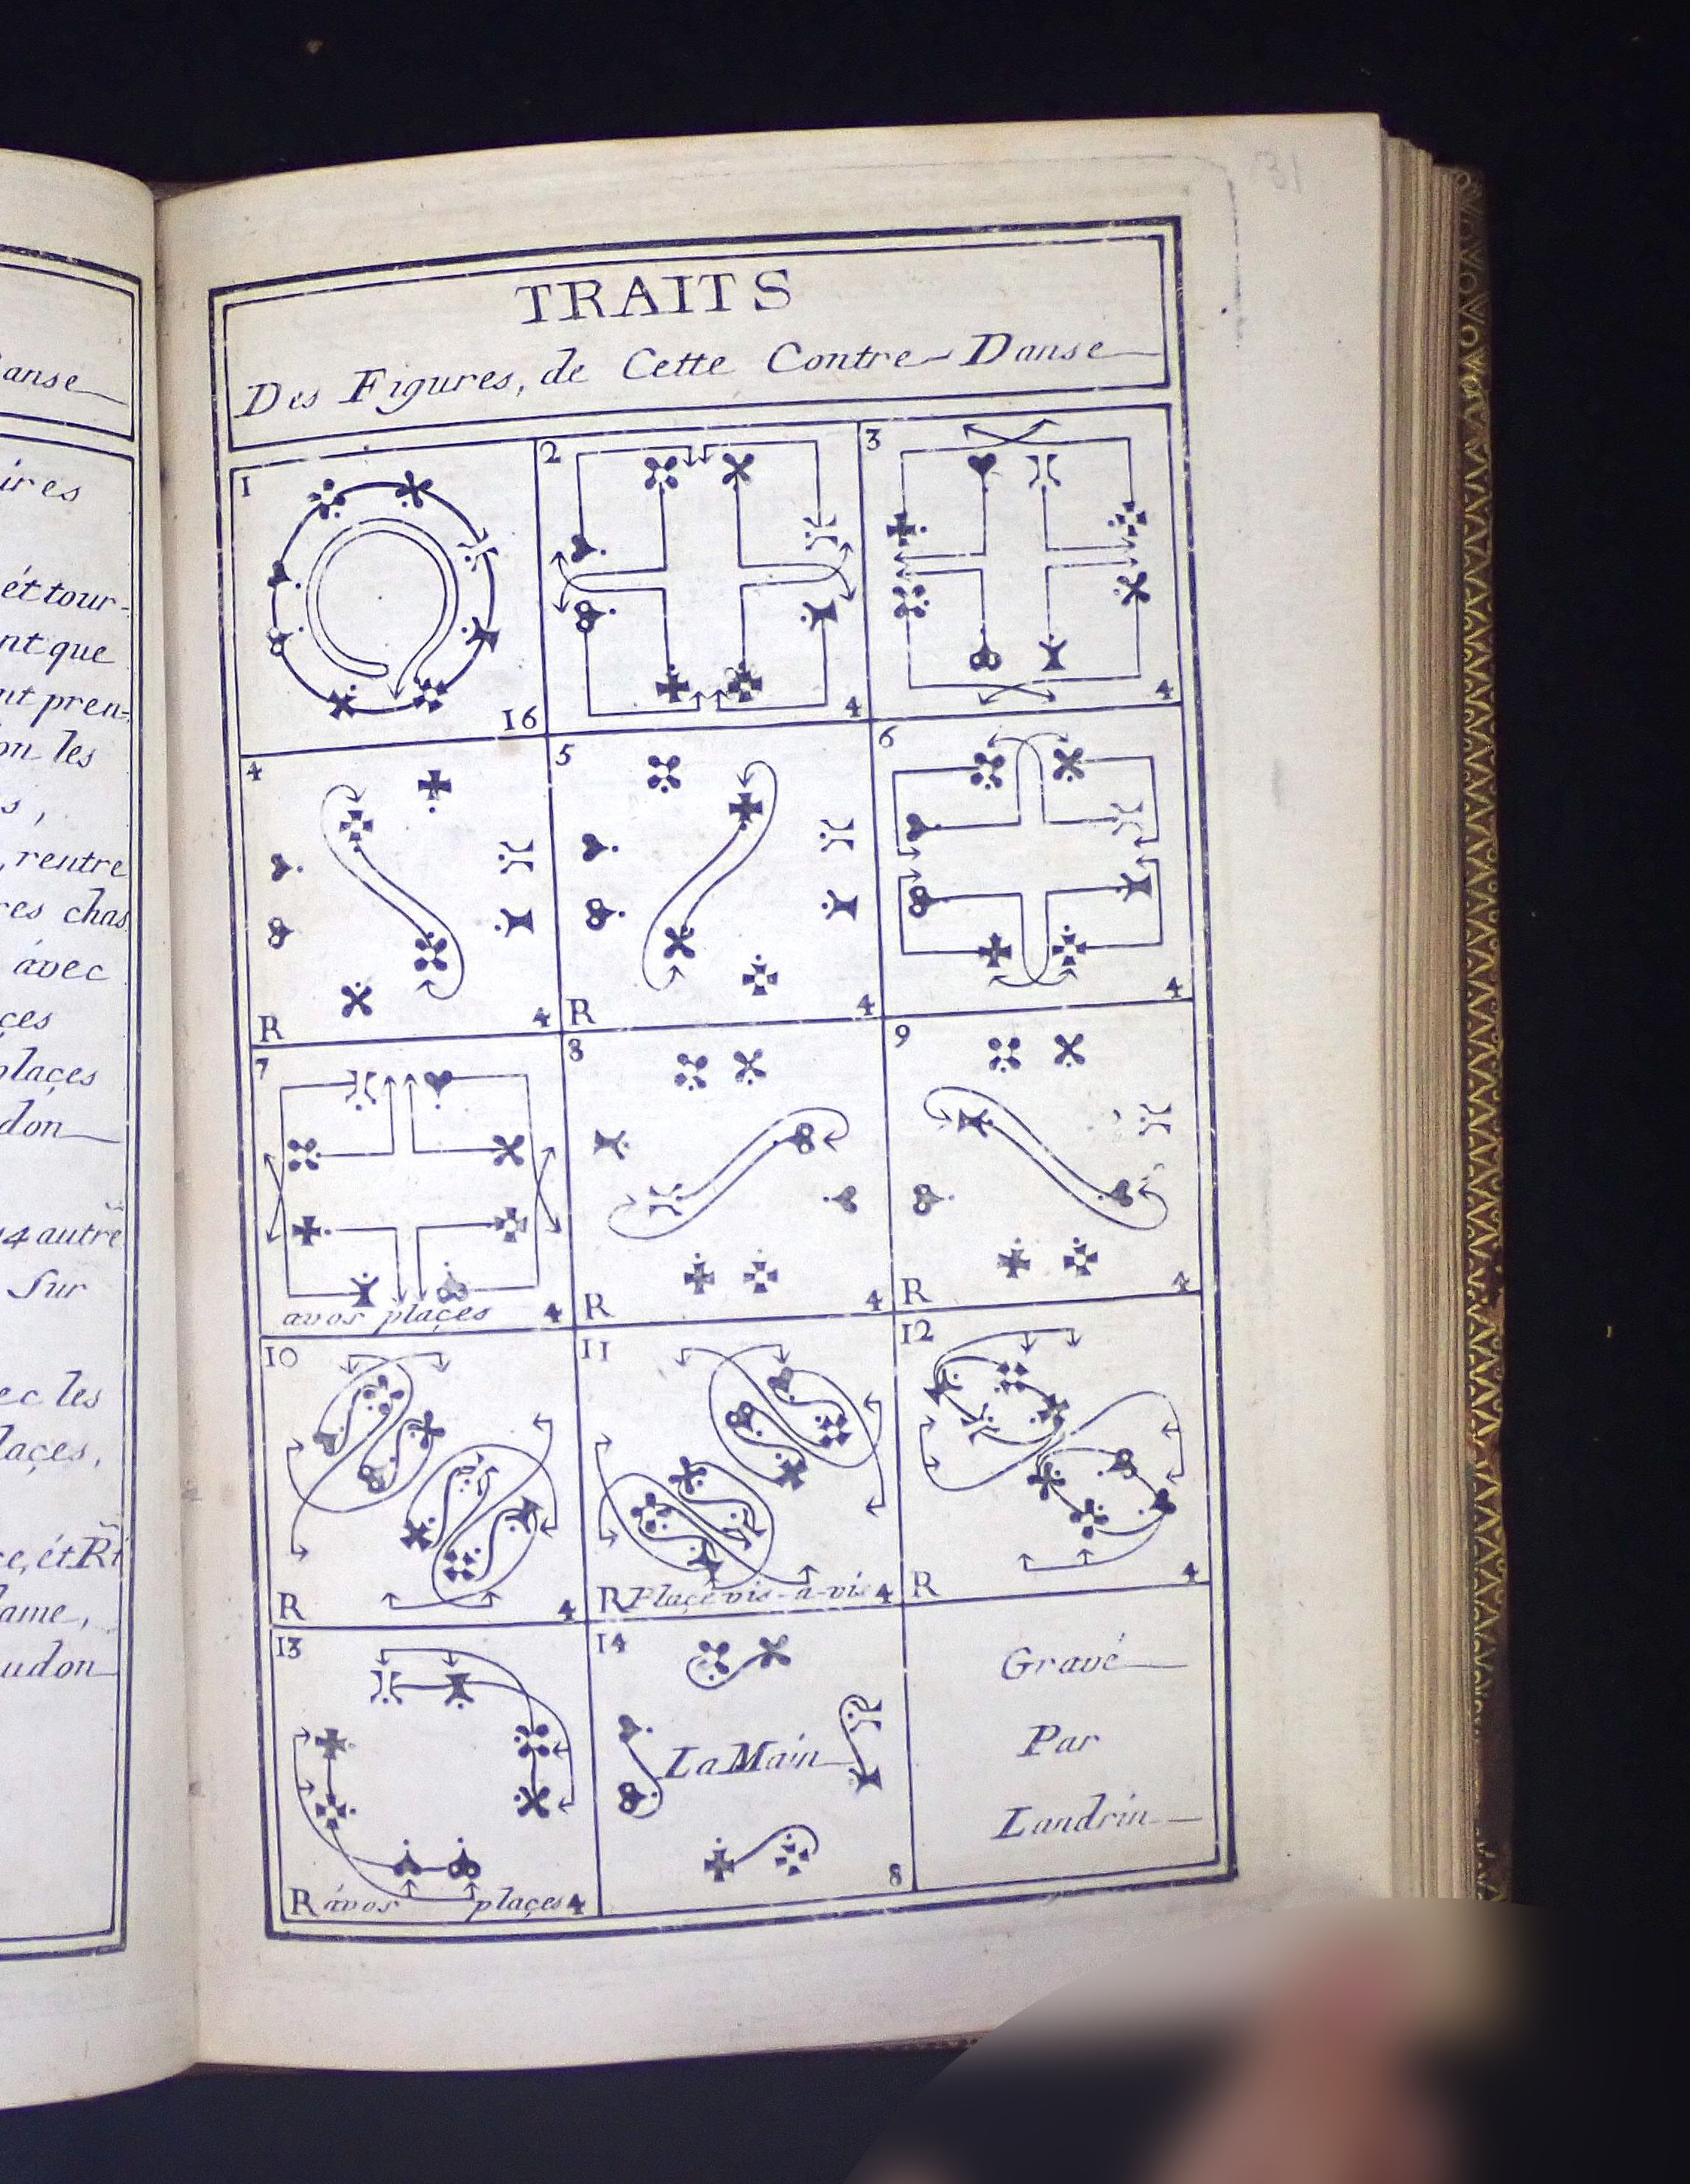 anse
ires
ét tour-
nt que
nt pren=
on les
s,
, rentre
res chas
ávec
ces
plaçes
don
4 autre
Sur
ec les
laçes,
ce, ét
ame,
udon
31
TRAITS
Des Figures, de Cette Contre-Danse
1
16
2
4
3
4
4
R
4
5
R
4
6
4
7
avos plaçes
4
8
R
4
9
R
4
10
R
4
11
R Plaçe vis-a-vis 4
12
R
4
13
R ávos plaçes 4
14
La Main
8
Gravé
Par
Landrin